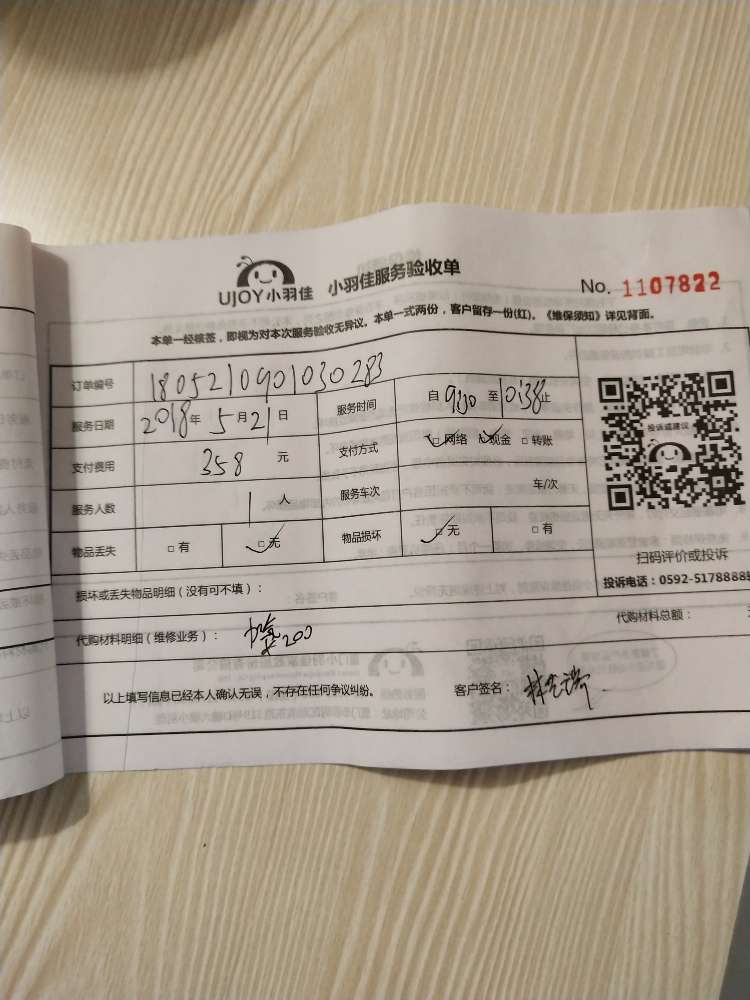 UJOY小羽佳 小羽佳服务验收单 No. 1107822
本单一经核签，即视为对本次服务验收无异议。本单一式两份，客户留存一份(红)。《维保须知》详见背面。
订单编号 1805210901030283
服务日期 2018年 5月21日 服务时间 自 9:30 至 10:38止
支付费用 358 元 支付方式 □网络 □现金 □转账
服务人数 1 人 服务车次 车/次
物品丢失 □有 □无 物品损坏 □无 □有
投诉或建议
扫码评价或投诉
投诉电话：0592-5178888
损坏或丢失物品明细（没有可不填）：
代购材料明细（维修业务）： 200
代购材料总额：
以上填写信息已经本人确认无误，不存在任何争议纠纷。 客户签名：